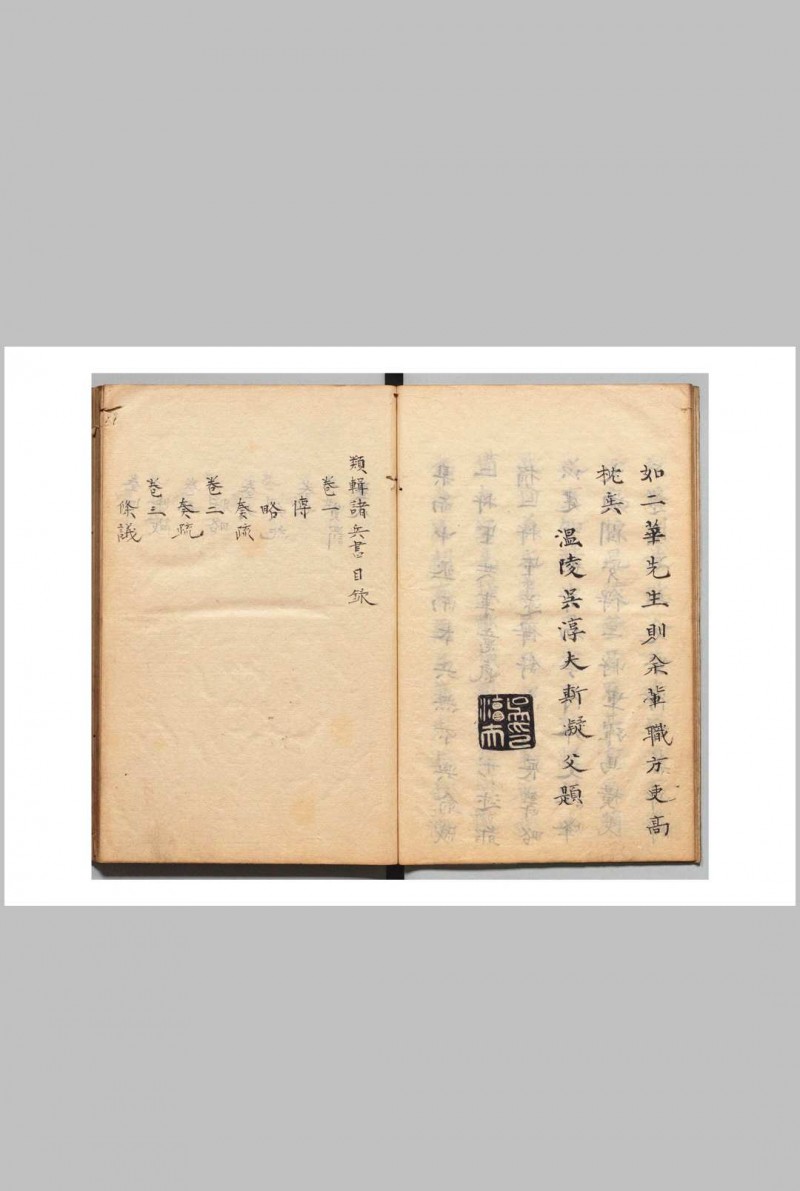 如二華先生則余輩職方吏高
枕矣
溫陵吳淳夫斬凝父題
類輯諸兵書目錄
卷一
傳
略
奏疏
卷二
奏疏
卷三
條議